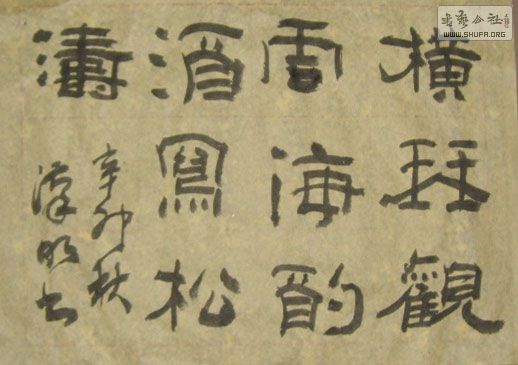 橫琴觀
雲海酌
酒寫松
濤
辛卯秋
书艺公社
WWW.SHUFA.ORG